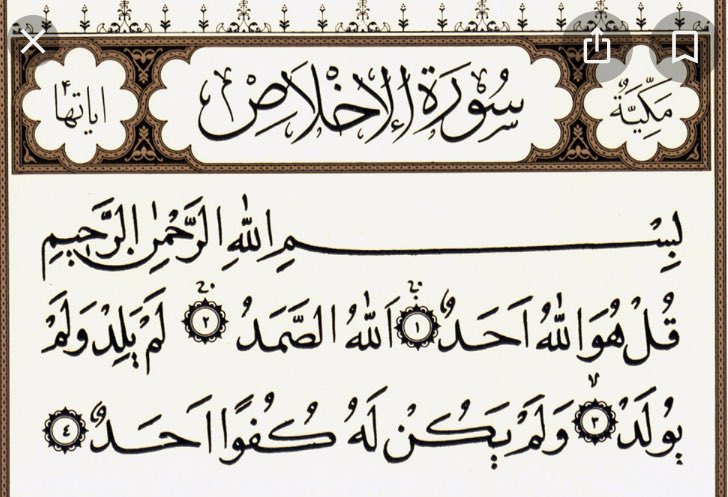 مَكِّيَّةٌ سُورَةُ الإِخْلَاصِ اياتها ٤
بِسْمِ اللّٰهِ الرَّحْمٰنِ الرَّحِيمِ
قُلْ هُوَ اللّٰهُ اَحَدٌ ۝١ اَللّٰهُ الصَّمَدُ ۝٢ لَمْ يَلِدْ وَلَمْ
يُولَدْ ۝٣ وَلَمْ يَكُنْ لَهُ كُفُوًا اَحَدٌ ۝٤